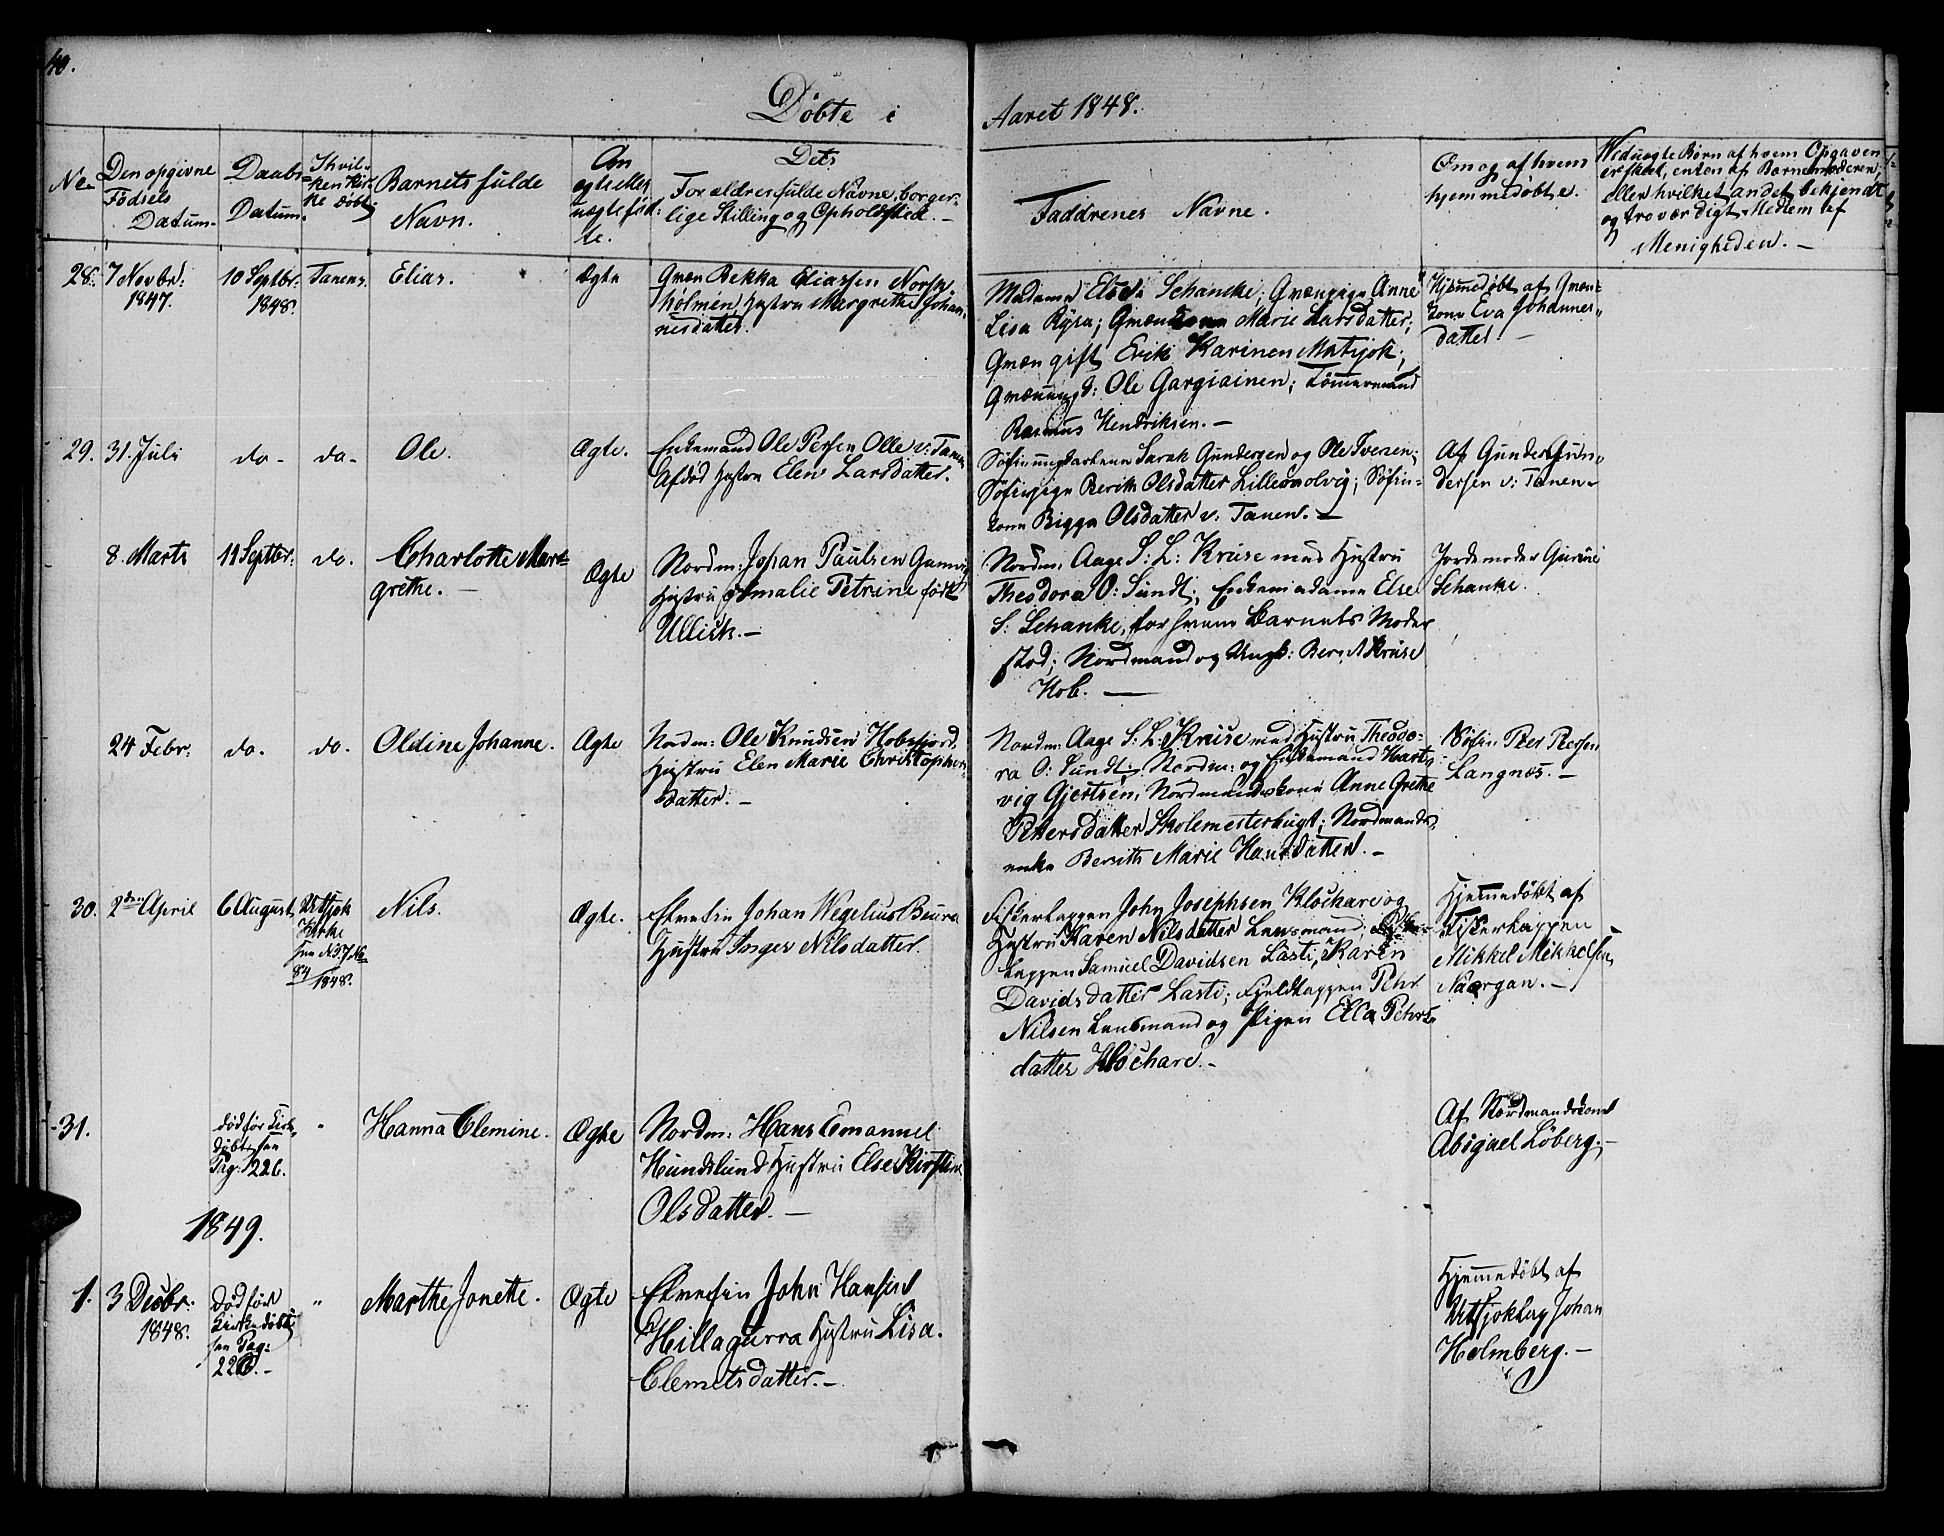 40.
Døbte i Aaret 1848.
No
Den opgivne
Födsels
Datum.
Daabs-
Datum.
I hvil-
ken Kir-
ke döbt,
Barnets fulde
Navn.
Om
ægte eller
uægte föd-
te.
Dets
Forældres fulde Navne, borger-
lige Stilling og Opholdsted. -
Faddrenes Navne.
Om og af hvem
hjemmedøbt.
Weduægte Børn af hvem Opgaven
er skeet, enten af Barnemoderen,
eller hvilket andet bekjendt
og troværdigt Medlem af
Menigheden. -
28. 7 Novbr:
1847.
10 Septbr:
1848.
Tanens.
Elias.
Ægte
Qvæn Bekka Eliassen
Hustru Margrethe Johan-
nesdatter.
Madame Elsen Schancke; Qvænpige Anne
Lisa Rysa; Marie Larsdatter;
Qvæn gift Erik Karinen Matsjok;
Ole Gargiainen; Tömmermand
Rasmus Hendriksen. -
Hjemedøbt af Qvæn-
kone Eva Johannes-
datter -
29. 31. Juli
do -
do -
Ole.
Ægte.
Enkemand Ole Persen Olle v: Tanen
Afdød Hustru Elen Larsdatter.
Søfinungkarlene Sarak Gundersen og Ole Iversen;
Søfinpige Berith Olsdatter Søfin-
kone Bigga Olsdatter v: Tanen. -
Af Gunder Gun-
dersen v: Tanen -
8. Marts
11 Septbr:
do.
Charlotte Mar-
grethe. -
Ægte
Nordm: Johan Paulsen
Hustru Amalie Petrine født
Ullich. -
Nordm. Aage S: L: Kruse med Hustru
Theodora O: Sundt; Enkemadame Else
S: Schanke, for hvem Barnets Moder
stod; Nordmand og Ungk: Kruse
Hob. -
Jordemoder Gurine
Schanke.
24 Febr:
do.
do.
Oldine Johanne.
Ægte
Nordm: Ole Knudsen Hobsfjord,
Hustru Elen Marie Christophers-
datter. -
Nordm: Aage S. L: Kruse med Hustru Theodo-
ra O: Sundt; Nordm: og Enkemand Hart-
vig Gjertsen, Nordmandskone Anne Grethe
Petersdatter Skolemesterbugt; Nordmands-
enke Berith Marie Hansdatter. -
Søfin Peer Persen
Langnæs. -
30. 2den April
6 August
Utsjok
Kirke
1848.
Nils.
Ægte.
Elvefin Johan Wegelius
Hustru Inger Nilsdatter
Fiskerlappen John Josephsen Klochare og
Hustru Karen Nilsdatter Lensmand;
Lappen Samuel Davidsen Lasti, Karen
Davidsdatter Lasti; Fjeldlappen Pehr
Nilsen Lensmand og Pigen Ella Pehrs-
datter Klochare. -
Hjemmedøbt af
Fiskerlappen
Mikkel Mikkelsen
31.
død før Kirk-
døbt, see
Pag: 226.
"
Hanna Clemine.
Ægte
Nordm: Hans Emanuel
Hundslund Hustru Else Kirstine
Olsdatter. -
Af Nordmandskone
Abigael Löberg. -
1849.
1. 3 Decbr:
1848.
Død før
Kirkedöbt
see Pag:
"
Marthe Jonette.
Ægte
Elvefin John Hansen
Hillagurra Hustru Lisa.
Clemetsdatter. -
Hjemmedöbt af
Utsjoklap Johan
Holmberg. -